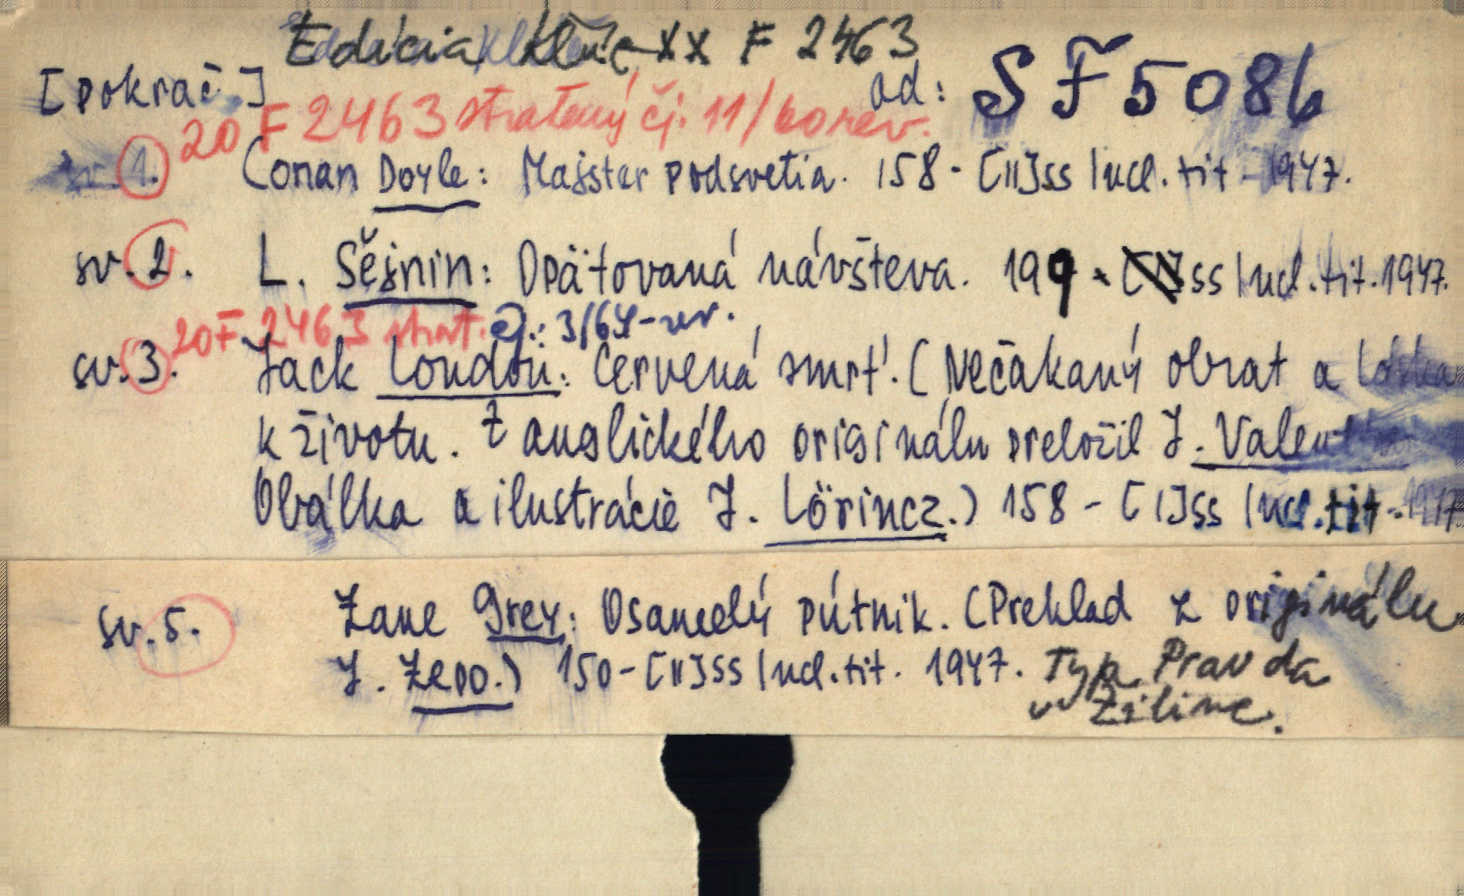 Edícia Kľúč XX F 2463
[pokrač.] ad: SF 5086
20 F 2463 stratený čj. 11/60 rev.
sv. 1. Conan Doyle: Majster podsvetia. 158-[II]ss Incl. tit. 1947.
sv. 2. L. Šejnin: Opätovaná návšteva. 199. ss Incl. tit. 1947.
20 F 2463 strat. čj.: 3/64-rev.
sv. 3. Jack London: Červená smrť. (Nečakaný obrat a Láska
k životu. Z anglického originálu preložil J. Valent
Obálka a ilustrácie J. Lörincz.) 158-[I]ss Incl. tit. 1947
sv. 5. Zane Grey: Osamelý pútnik. (Preklad z originálu
J. Zepo.) 150-[II]ss Incl. tit. 1947. Typ. Pravda
v Žiline.